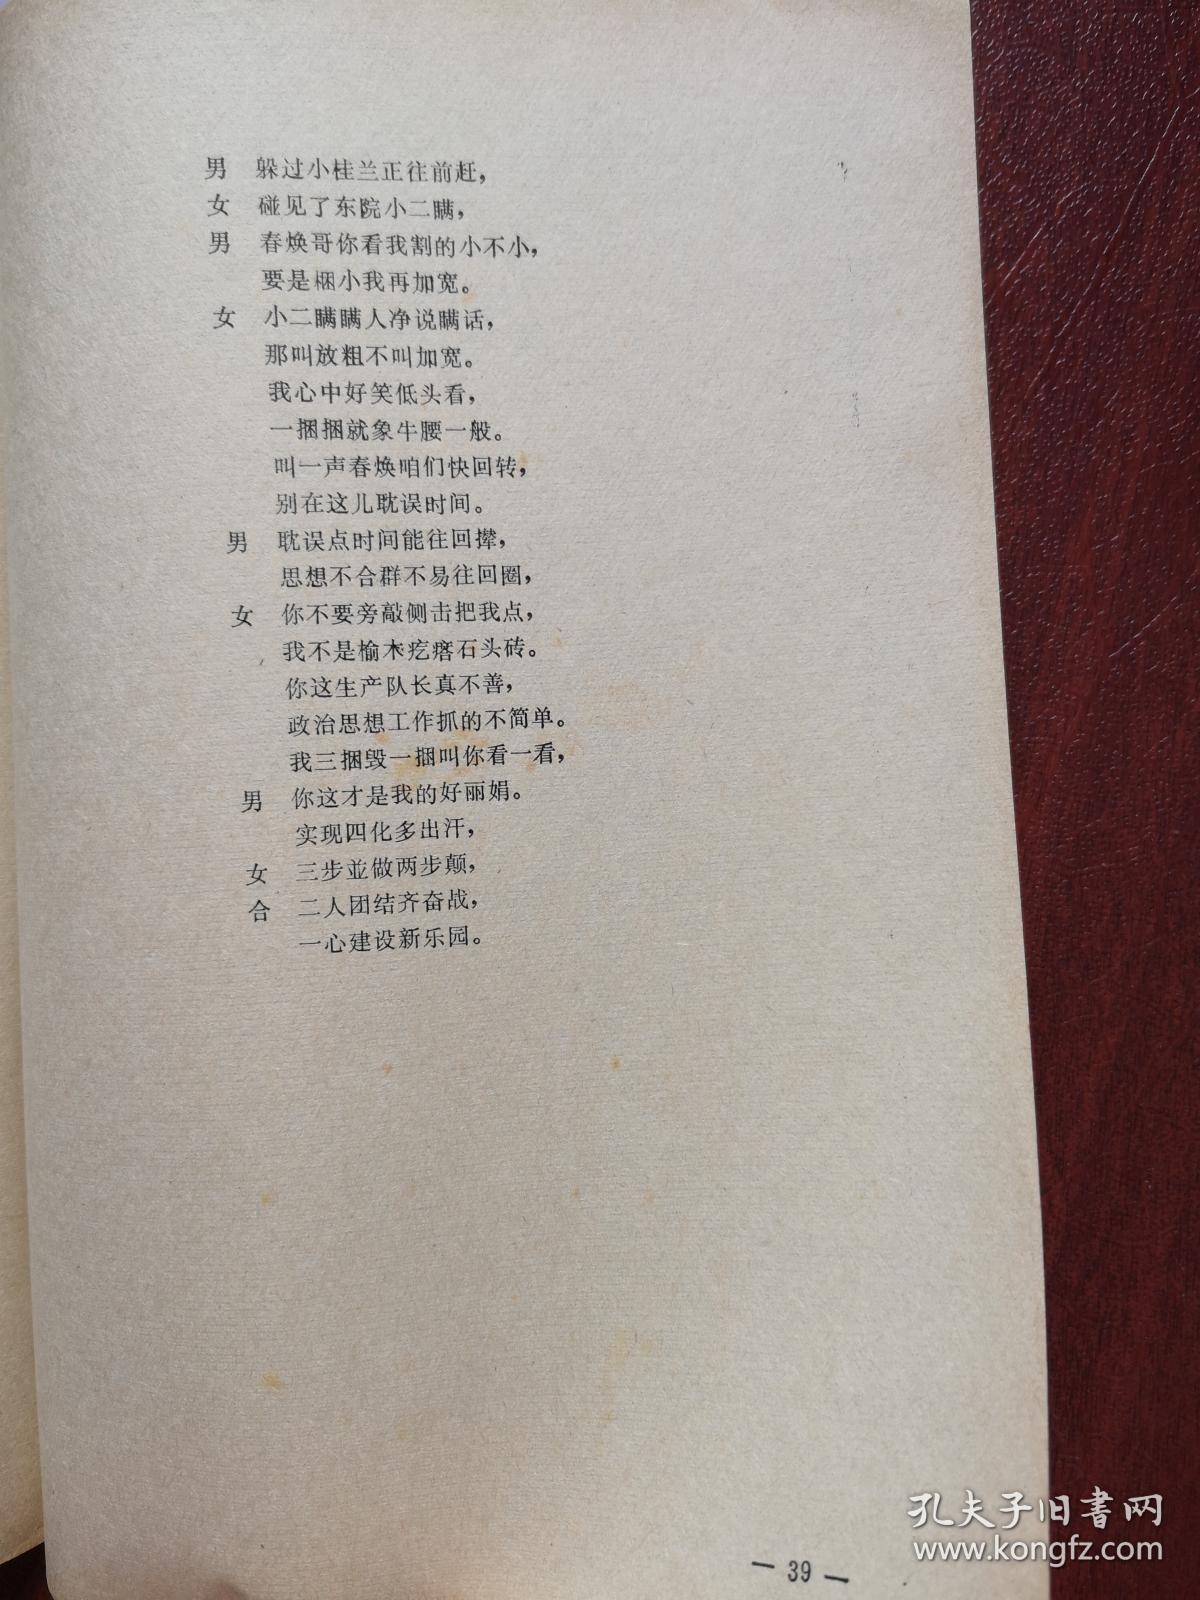 男 躲过小桂兰正往前赶，
女 碰见了东院小二瞒，
男 春焕哥你看我割的小不小，
要是梱小我再加宽。
女 小二瞒瞒人净说瞒话，
那叫放粗不叫加宽。
我心中好笑低头看，
一捆捆就象牛腰一般。
叫一声春焕咱们快回转，
别在这儿耽误时间。
男 耽误点时间能往回撵，
思想不合群不易往回圈，
女 你不要旁敲侧击把我点，
我不是榆木疙瘩石头砖。
你这生产队长真不善，
政治思想工作抓的不简单。
我三捆毁一捆叫你看一看，
男 你这才是我的好丽娟。
实现四化多出汗，
女 三步並做两步颠，
合 二人团结齐奋战，
一心建设新乐园。
— 39 —
孔夫子旧書网
www.kongfz.com